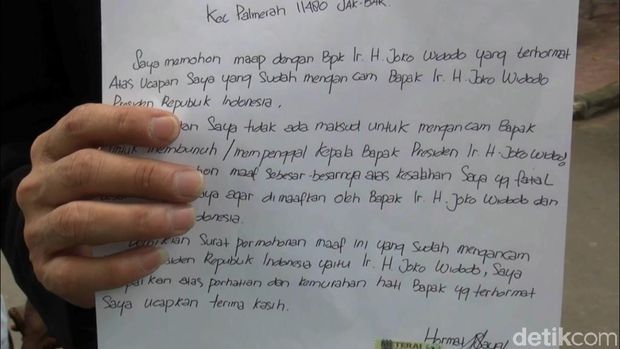 Kec Palmerah 11480 JAK-BAR.
Saya memohon maap dengan Bpk Ir. H. Joko Widodo yang terhormat
Atas Ucapan Saya yang Sudah mengancam Bapak Ir. H. Joko Widodo
Presiden Republik Indonesia.
Saya tidak ada maksud untuk mengancam Bapak
untuk membunuh / mempenggal kepala Bapak Presiden Ir. H. Joko Widodo
maaf sebesar-besarnya atas kesalahan Saya yg fatal
agar dimaafkan oleh Bapak Ir. H. Joko Widodo dan
Surat permohonan maaf ini yang sudah mengancam
Republik Indonesia yaitu Ir. H. Joko Widodo, Saya
atas perhatian dan kemurahan hati Bapak yg terhormat
Saya ucapkan terima kasih.
Hormat
TERAI
detikcom